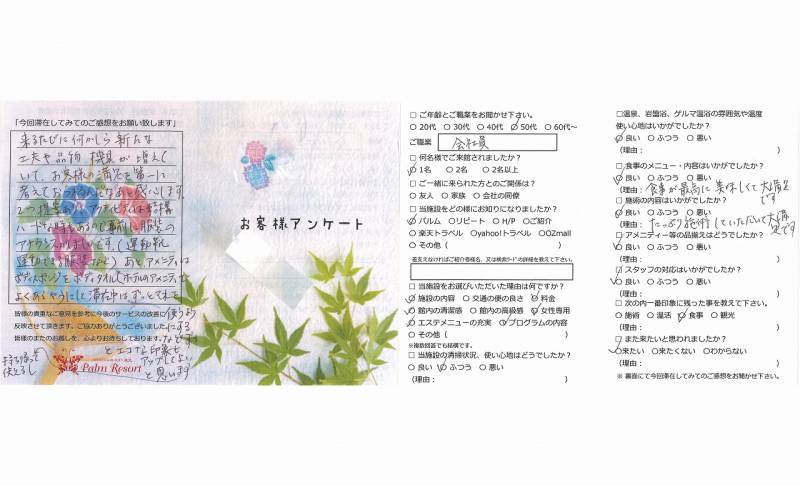 「今回滞在してみてのご感想をお願い致します」
来るたびに何かしら新たな
工夫や品物、機具が増えて
いて、お客様の満足を第一に
考えておつるんだなあと感心します
2つ提案
ハード
アナウンスがほしいです。(運動靴
運動できる服装など) あと、アメニティは
ボディスポンジをボディタオル(ホテルのアメニティで
よくあるやつ)にして滞在中はずっとそれを
使うよう
にする
など
とエコな印象も
アップしてよい
と思います
持ち帰って
使えるし
皆様の貴重なご意見を参考に今後のサービスの改善に
反映させて頂きます。ご協力ありがとうございました
皆様のまたのお越しを、心よりお待ちしております。
Palm Resort
お客様アンケート
□ ご年齢とご職業をお聞かせ下さい。
○ 20代 ○ 30代 ○ 40代 ○ 50代 ○ 60代~
ご職業 会社員
□ 何名様でご来館されましたか?
○ 1名 ○ 2名 ○ 2名以上
□ ご一緒に来られた方とのご関係は?
○ 友人 ○ 家族 ○ 会社の同僚
□ 当施設をどの様にお知りになりましたか?
○ パルム ○ リピート ○ H/P ○ ご紹介
○ 楽天トラベル ○ yahoo!トラベル ○ OZmall
○ その他 ( )
差支えなければご紹介者様名、又は検索ワードの詳細を教えて下さい。
□ 当施設をお選びいただいた理由は何ですか?
○ 施設の内容 ○ 交通の便の良さ ○ 料金
○ 館内の清潔感 ○ 館内の高級感 ○ 女性専用
○ エステメニューの充実 ○ プログラムの内容
○ その他 ( )
※複数回答でも結構です。
□ 当施設の清掃状況、使い心地はどうでしたか?
○ 良い ○ ふつう ○ 悪い
(理由: )
□ 温泉、岩盤浴、ゲルマ温浴の雰囲気や温度
使い心地はいかがでしたか?
○ 良い ○ ふつう ○ 悪い
(理由: )
□ 食事のメニュー・内容はいかがでしたか?
○ 良い ○ ふつう ○ 悪い
(理由: 食事が最高に美味しくて大満足です )
□ 施術の内容はいかがでしたか?
○ 良い ○ ふつう ○ 悪い
(理由: たっぷり施術していただいて大満足です )
□ アメニティー等の品揃えはどうでしたか?
○ 良い ○ ふつう ○ 悪い
(理由: )
□ スタッフの対応はいかがでしたか?
○ 良い ○ ふつう ○ 悪い
(理由: )
□ 次の内一番印象に残った事を教えて下さい。
○ 施術 ○ 温活 ○ 食事 ○ 観光
□ また来たいと思われましたか?
○ 来たい ○ 来たくない ○ わからない
(理由: )
※ 裏面にて今回滞在してみてのご感想をお聞かせ下さい。